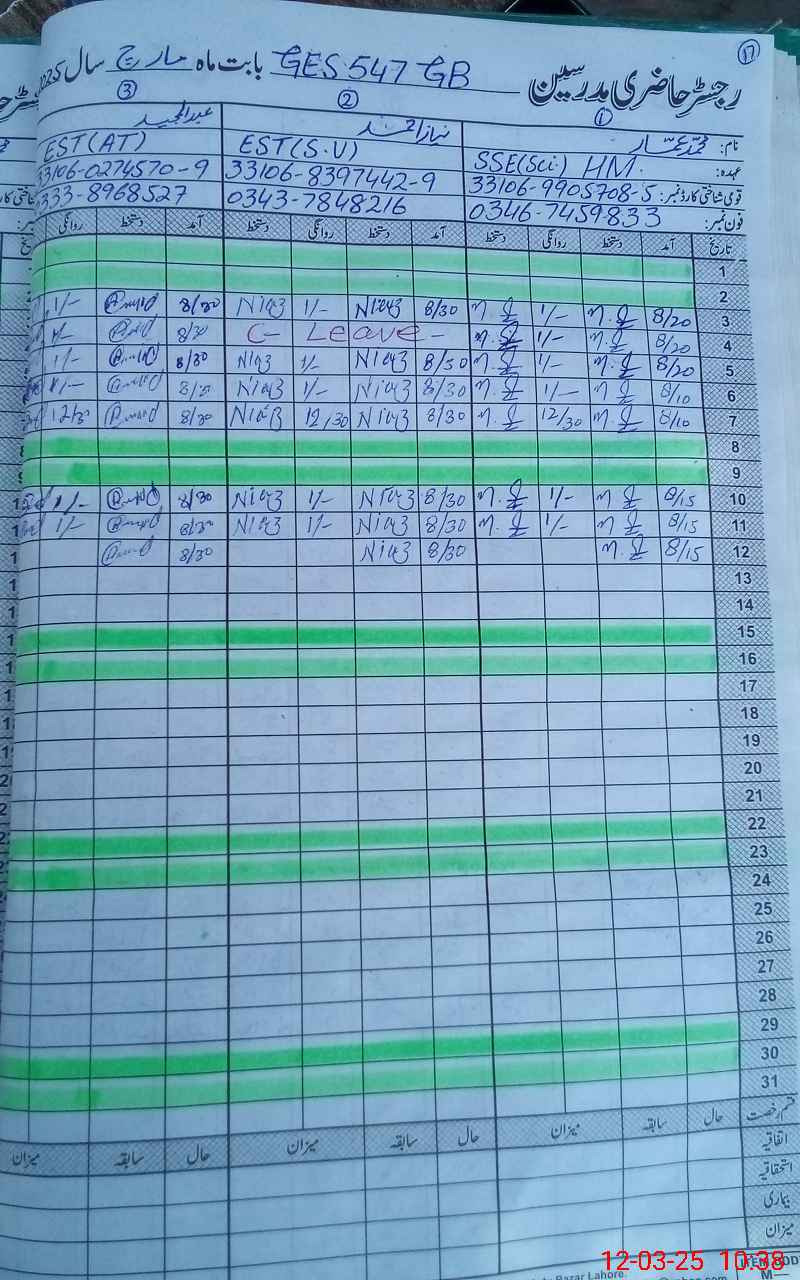 17
رجسٹر حاضری مدرسین GES 547 GB بابت ماہ مارچ سال 2025
1 2 3
نام: محمد عمار نیاز احمد عبدالمجید
عہدہ: SSE(Sci) HM. EST(S.V) EST(AT)
قومی شناختی کارڈ نمبر: 33106-9905708-5 33106-8397442-9 33106-0274570-9
فون نمبر: 0346-7459833 0343-7848216 0333-8968527
تاریخ آمد دستخط روانگی دستخط آمد دستخط روانگی دستخط آمد دستخط روانگی
1
2
3 8/20 1/- 8/30 Niaz 1/- Niaz 8/30 1/-
4 8/20 1/- C- Leave - 8/30
5 8/20 1/- 8/30 Niaz 1/- Niaz 8/30 1/-
6 8/10 1/- 8/30 Niaz 1/- Niaz 8/30 1/-
7 8/10 12/30 8/30 Niaz 12/30 Niaz 8/30 12/3
8
9
10 8/15 1/- 8/30 Niaz 1/- Niaz 8/30 1/-
11 8/15 1/- 8/30 Niaz 1/- Niaz 8/30 1/-
12 8/15 8/30 Niaz 8/30
13
14
15
16
17
18
19
20
21
22
23
24
25
26
27
28
29
30
31
قسم رخصت حال سابقہ میزان حال سابقہ میزان حال سابقہ میزان
اتفاقیہ
استحقاقیہ
بیماری
میزان
Bazar Lahore.
12-03-25 10:38